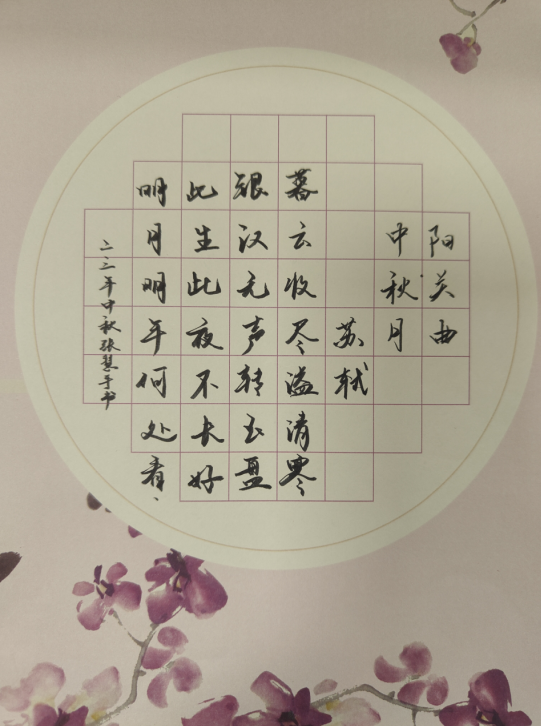 阳关曲
中秋月
苏轼
暮云收尽溢清寒
银汉无声转玉盘
此生此夜不长好
明月明年何处看
二三年中秋张慧手书